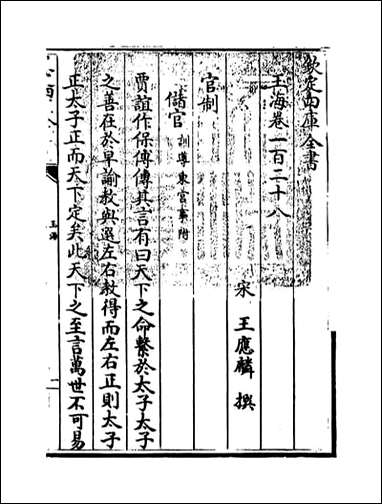 欽定四庫全書
玉海卷一百二十八
宋 王應麟 撰
官制
儲官 訓導東宮事附
賈誼作保傅傳其言有曰天下之命繫於太子太子
之善在於早諭教與選左右教得而左右正則太子
正太子正而天下定矣此天下之至言萬世不可易
玉海
一